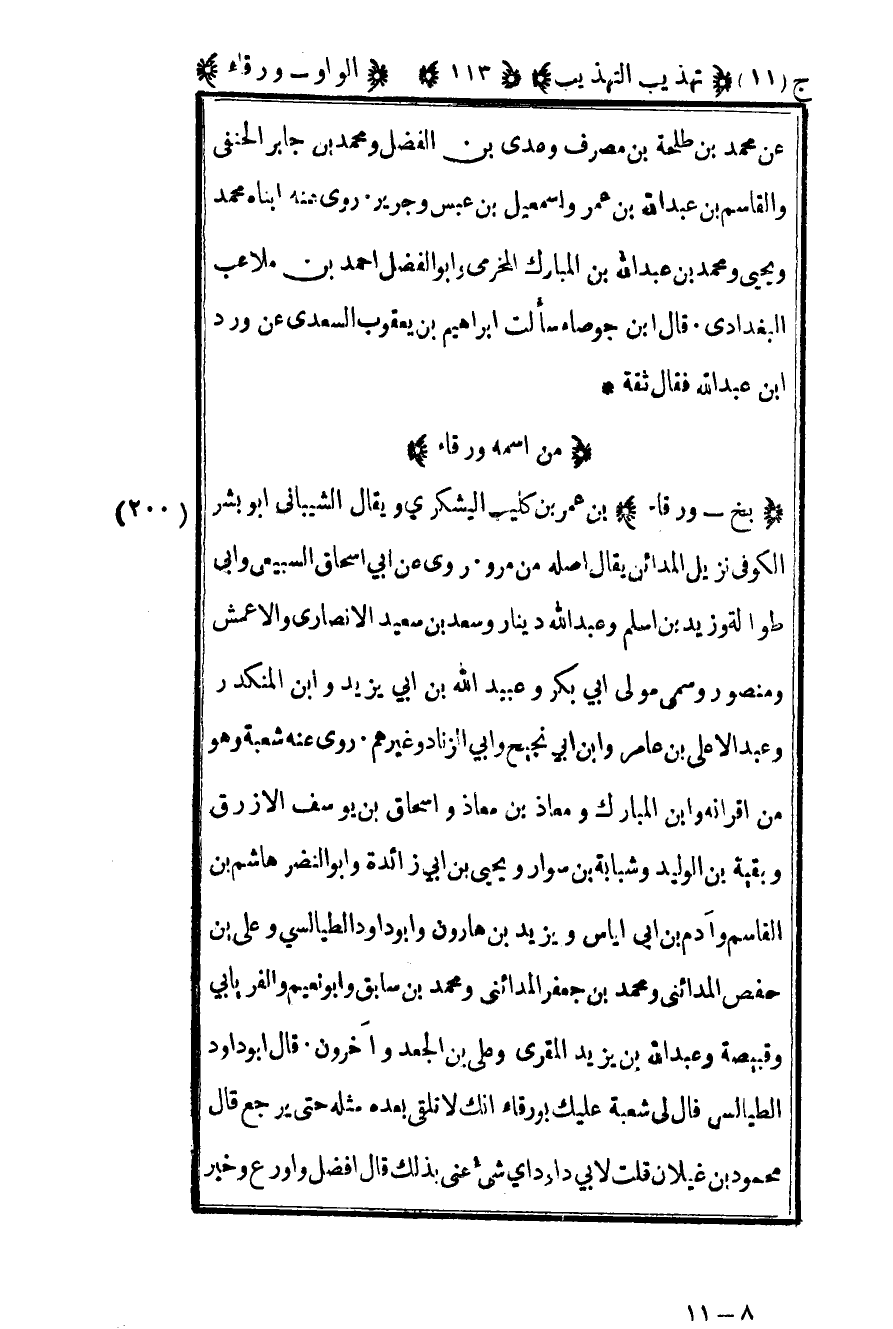 ج (١١) ﴿ تهذيب التهذيب ﴾ ﴿ ١١٣ ﴾ ﴿ الواو ــ ورقاء ﴾
عن محمد بن طلحة بن مصرف وعدى بن الفضل ومحمد بن جابر الحنفى
والقاسم بن عبدالله بن عمر واسمعيل بن عبس وجرير · روى عنه ابناه محمد
ويحيى ومحمد بن عبدالله بن المبارك المخرمى وابوالفضل احمد بن ملاعب
البغدادى · قال ابن جوصاء سألت ابراهيم بن يعقوب السعدى عن ورد
ابن عبدالله فقال ثقة *
﴿ من اسمه ورقاء ﴾
﴿ بخ ــ ورقاء ﴾ بن عمر بن كليب اليشكري ويقال الشيبانى ابو بشر
(٢٠٠)
الكوفى نزيل المدائن يقال اصله من مرو · روى عن ابي اسحاق السبيعى وابى
طوالة وزيد بن اسلم وعبدالله دينار وسعد بن سعيد الانصارى والاعمش
ومنصور وسمى مولى ابي بكر وعبيد الله بن ابي يزيد وابن المنكدر
وعبد الاعلى بن عامر وابن ابي نجيح وابي الزناد وغيرهم · روى عنه شعبة وهو
من اقرانه وابن المبارك ومعاذ بن معاذ واسحاق بن يوسف الازرق
وبقية بن الوليد وشبابة بن سوار ويحيى بن ابي زائدة وابوالنضر هاشم بن
القاسم وآدم بن ابي اياس ويزيد بن هارون وابوداود الطيالسي وعلى بن
حفص المدائنى ومحمد بن جعفر المدائنى ومحمد بن سابق وابونعيم والفريابي
وقبيصة وعبدالله بن يزيد المقرى وعلى بن الجعد وآخرون · قال ابوداود
الطيالس قال لى شعبة عليك بورقاء انك لا تلقى بعده مثله حتى يرجع قال
محمود بن غيلان قلت لابي داود اي شئ عنى بذلك قال افضل واورع وخير
٨ — ١١